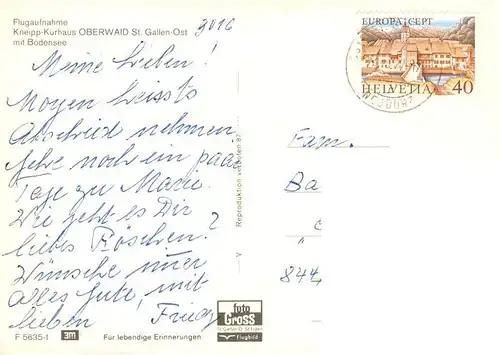 Flugaufnahme
Kneipp-Kurhaus OBERWAID St. Gallen-Ost
mit Bodensee
9016
Meine Lieben!
Morgen heissts
Abschied nehmen
Gehe noch ein paar
Tage zu Marie.
Wie geht es Dir
liebes Röschen?
Wünsche nur
alles Gute, mit
lieben Friedy
F 5635-1
3M
Für lebendige Erinnerungen
V Reproduktion verboten 87
foto
Gross
St.Gallen
Flugbild
EUROPA CEPT
HELVETIA 40
Fam.
Ba
c
844